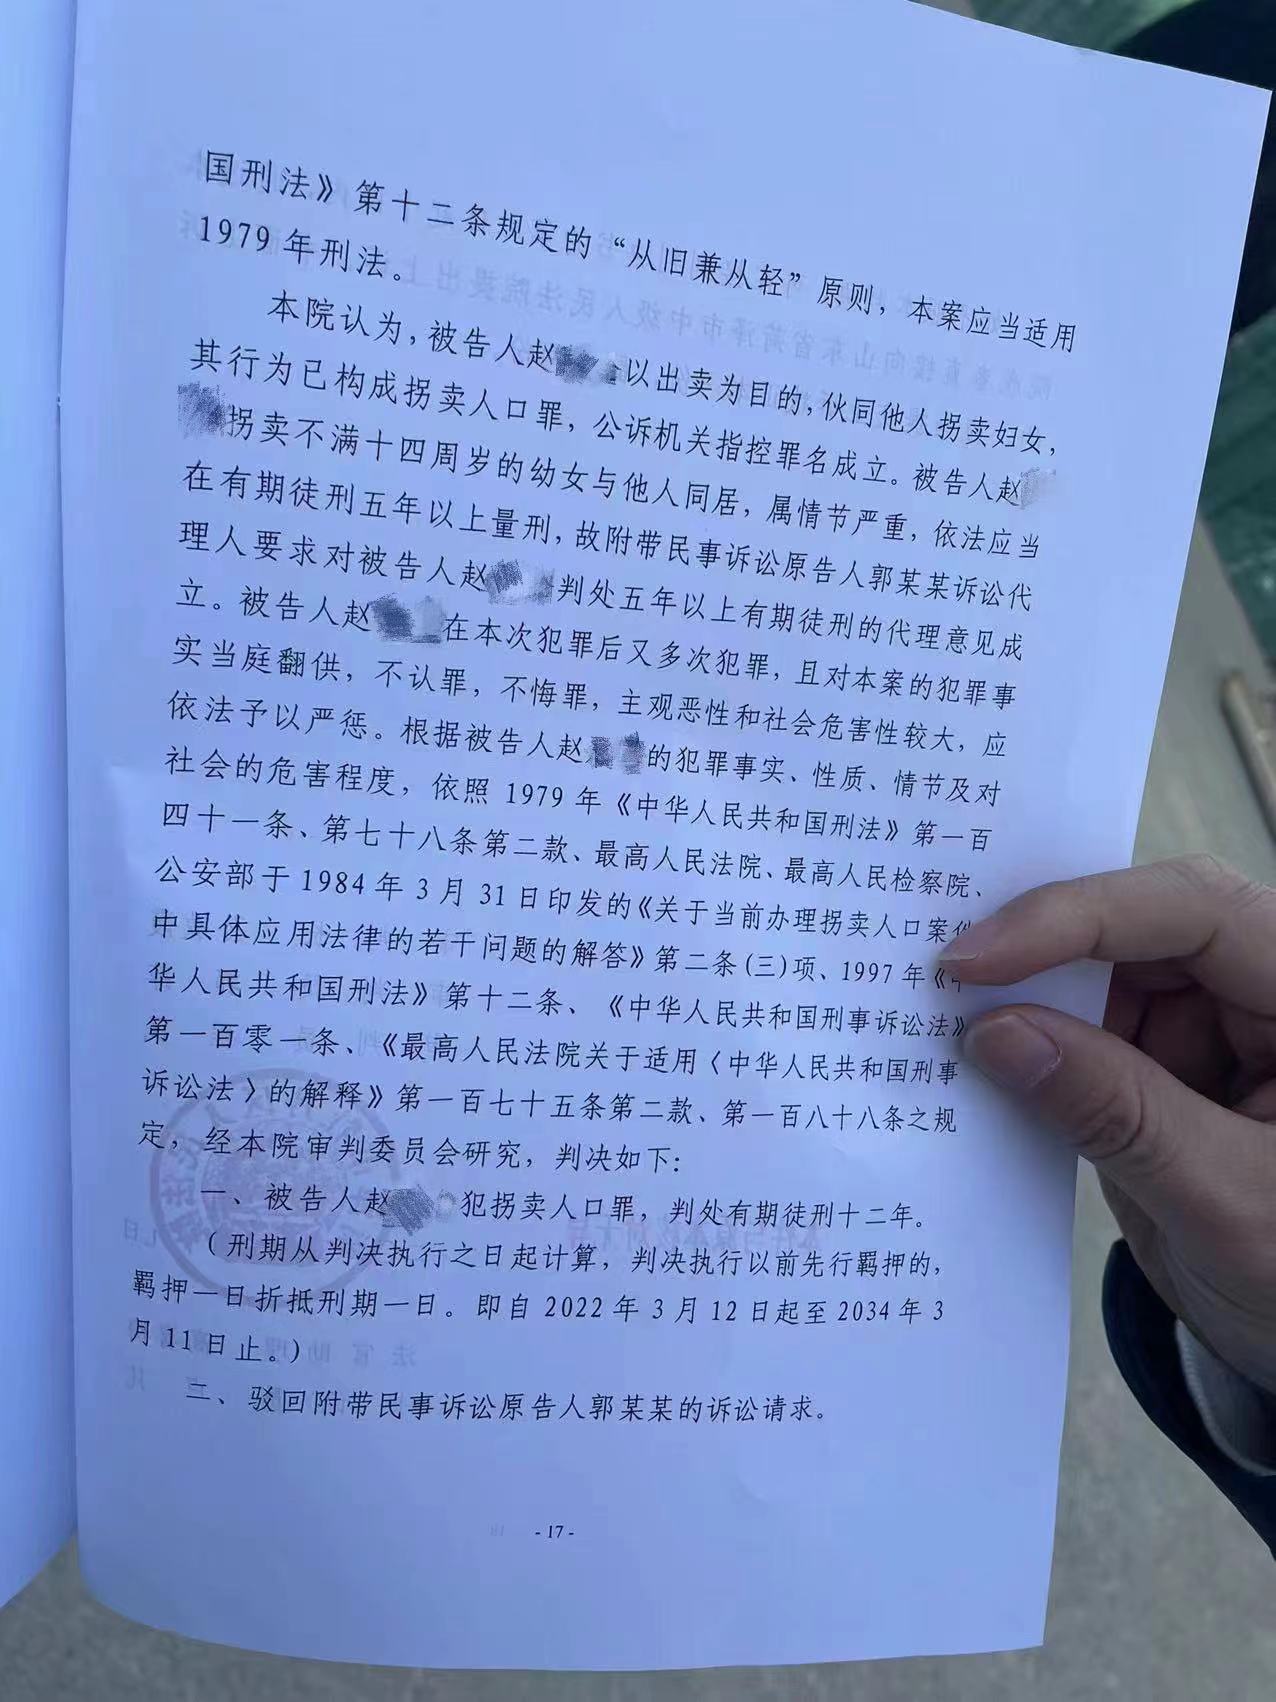 国刑法》第十二条规定的“从旧兼从轻”原则，本案应当适用
1979年刑法。
本院认为，被告人赵以出卖为目的，伙同他人拐卖妇女，
其行为已构成拐卖人口罪，公诉机关指控罪名成立。被告人赵
拐卖不满十四周岁的幼女与他人同居，属情节严重，依法应当
在有期徒刑五年以上量刑，故附带民事诉讼原告人郭某某诉讼代
理人要求对被告人赵判处五年以上有期徒刑的代理意见成
立。被告人赵在本次犯罪后又多次犯罪，且对本案的犯罪事
实当庭翻供，不认罪，不悔罪，主观恶性和社会危害性较大，应
依法予以严惩。根据被告人赵的犯罪事实、性质、情节及对
社会的危害程度，依照1979年《中华人民共和国刑法》第一百
四十一条、第七十八条第二款、最高人民法院、最高人民检察院、
公安部于1984年3月31日印发的《关于当前办理拐卖人口案
中具体应用法律的若干问题的解答》第二条(三)项、1997年《
华人民共和国刑法》第十二条、《中华人民共和国刑事诉讼法》
第一百零一条、《最高人民法院关于适用〈中华人民共和国刑事
诉讼法〉的解释》第一百七十五条第二款、第一百八十八条之规
定，经本院审判委员会研究，判决如下：
一、被告人赵犯拐卖人口罪，判处有期徒刑十二年。
（刑期从判决执行之日起计算，判决执行以前先行羁押的，
羁押一日折抵刑期一日。即自2022年3月12日起至2034年3
月11日止。）
二、驳回附带民事诉讼原告人郭某某的诉讼请求。
- 17 -